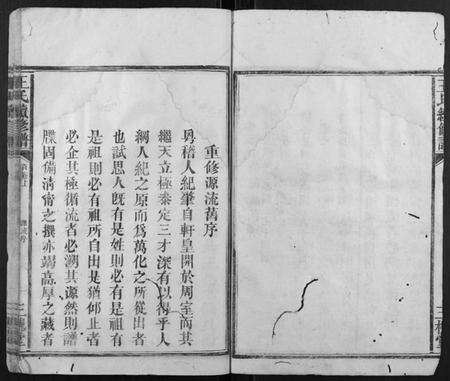 重修源流舊序
粵稽人紀肇自軒皇開於周室商其
繼天立極泰定三才深有以得乎人
綱人紀之原而為萬化之所從出者
也試思人既有是姓則必有是祖有
是祖則必有祖所自出是猶仰止者
必企其極循流者必溯其源然則譜
牒固備清甯之撰亦端高厚之藏者
王氏續修譜
三槐堂
王氏續修譜
三槐堂